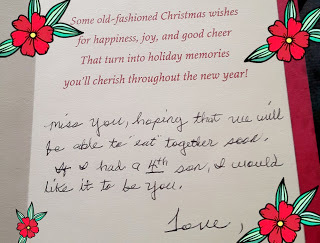 Some old-fashioned Christmas wishes
for happiness, joy, and good cheer
That turn into holiday memories
you'll cherish throughout the new year!
Miss You, hoping that we will
be able to "eat" together soon.
If I had a 4th son, I would
like it to be you.
Love,